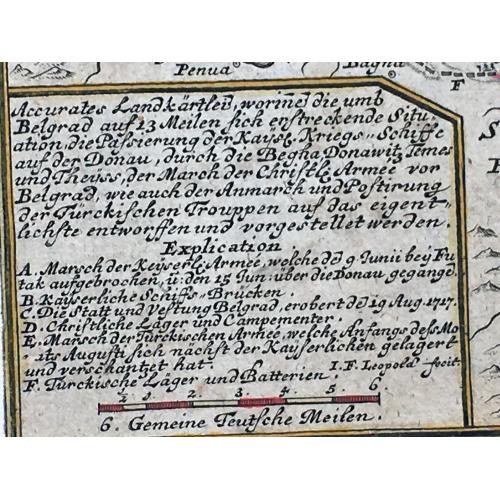 Penua
Bagna
F
Accurates Landkärtlein, worinnē die umb
Belgrad auf 13 Meilen sich erstreckende Situ-
ation, die Passierung der Kaÿsl. Kriegs-Schiffe
auf der Donau, durch die Begha, Donawitz, Temes
und Theüss, der March der Christl. Armeé vor
Belgrad, wie auch der Anmarch und Postirung
der Türckischen Trouppen auf das eigent-
lichste entworffen und vorgestellet werden.
Explication
A. Marsch der Keÿserl. Armeé, welche dē 9 Junii beÿ Fu-
tak aufgebrochen, ü: den 15 Jun: über die Donau gegangē.
B. Kaÿserliche Schiffs-Brücken.
C. Die Statt und Vestung Belgrad, erobert dē 19 Aug. 1717.
D. Christliche Läger und Campementer.
E. Marsch der Türckischen Armeé, welche Anfangs deß Mo-
nats Augusti sich nächst der Kaÿserlichen gelägert
und verschantzet hat.
F. Türckische Läger und Batterien I. F. Leopold fecit.
1/2 1. 2. 3. 4. 5. 6
6. Gemeine Teutsche Meilen.
S